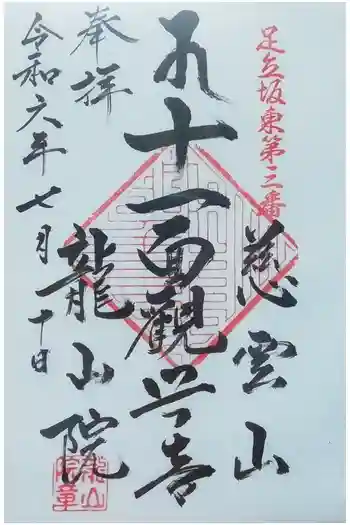 足立坂東第三番
慈雲山
十一面觀世音
奉拝
龍山院
令和六年七月二十日
龍山院章